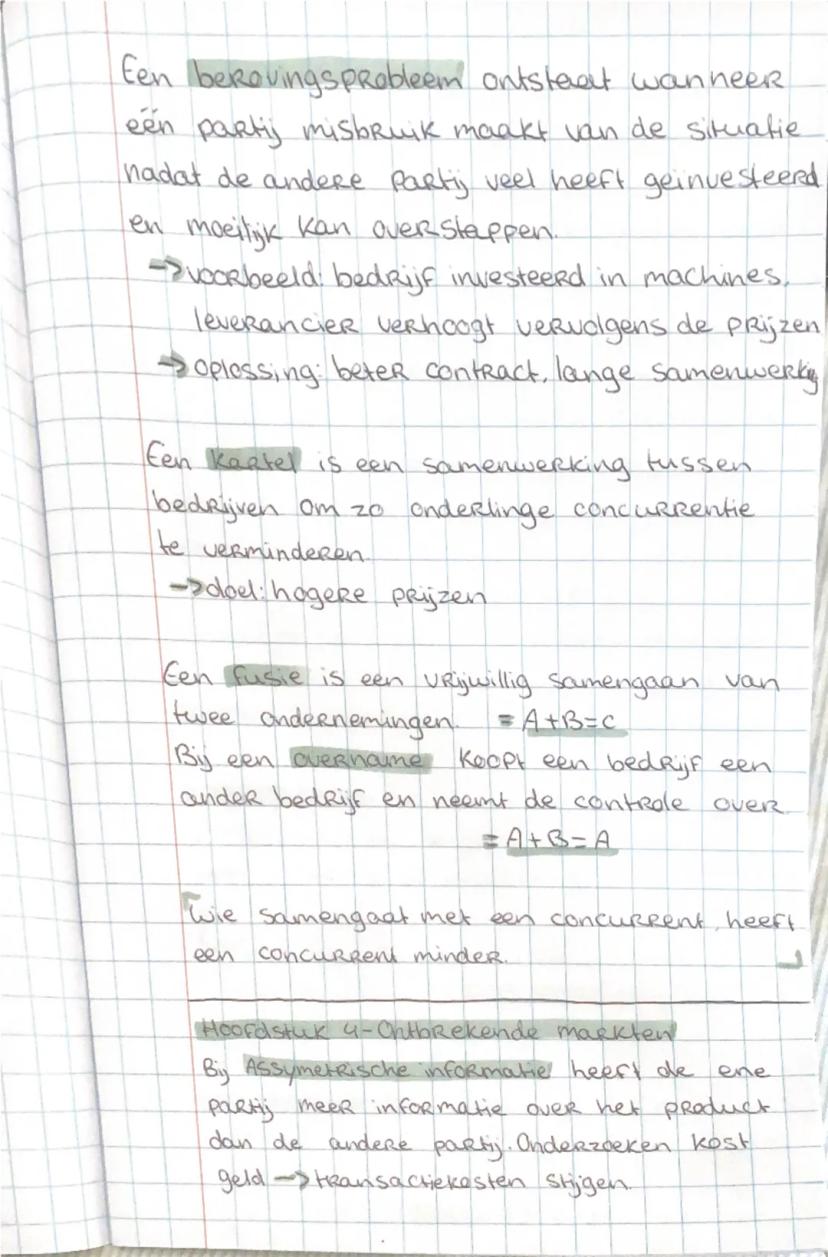 Een berovingsprobleem ontstaat wanneer
één partij misbruik maakt van de situatie
nadat de andere partij veel heeft geinvesteerd
en moeilijk kan overstappen.
→ voorbeeld: bedrijf investeerd in machines,
leverancier verhoogt vervolgens de prijzen
→ oplossing: beter contract, lange samenwerking
Een kartel is een samenwerking tussen
bedrijven om zo onderlinge concurrentie
te verminderen.
→ doel: hogere prijzen
Een fusie is een vrijwillig samengaan van
twee ondernemingen. = A+B=C
Bij een overname koopt een bedrijf een
ander bedrijf en neemt de controle over.
= A+B=A
Wie samengaat met een concurrent, heeft
een concurrent minder.
Hoofdstuk 4 - Ontbrekende markten
Bij Assymetrische informatie heeft de ene
partij meer informatie over het product
dan de andere partij. Onderzoeken kost
geld → transactiekosten stijgen.